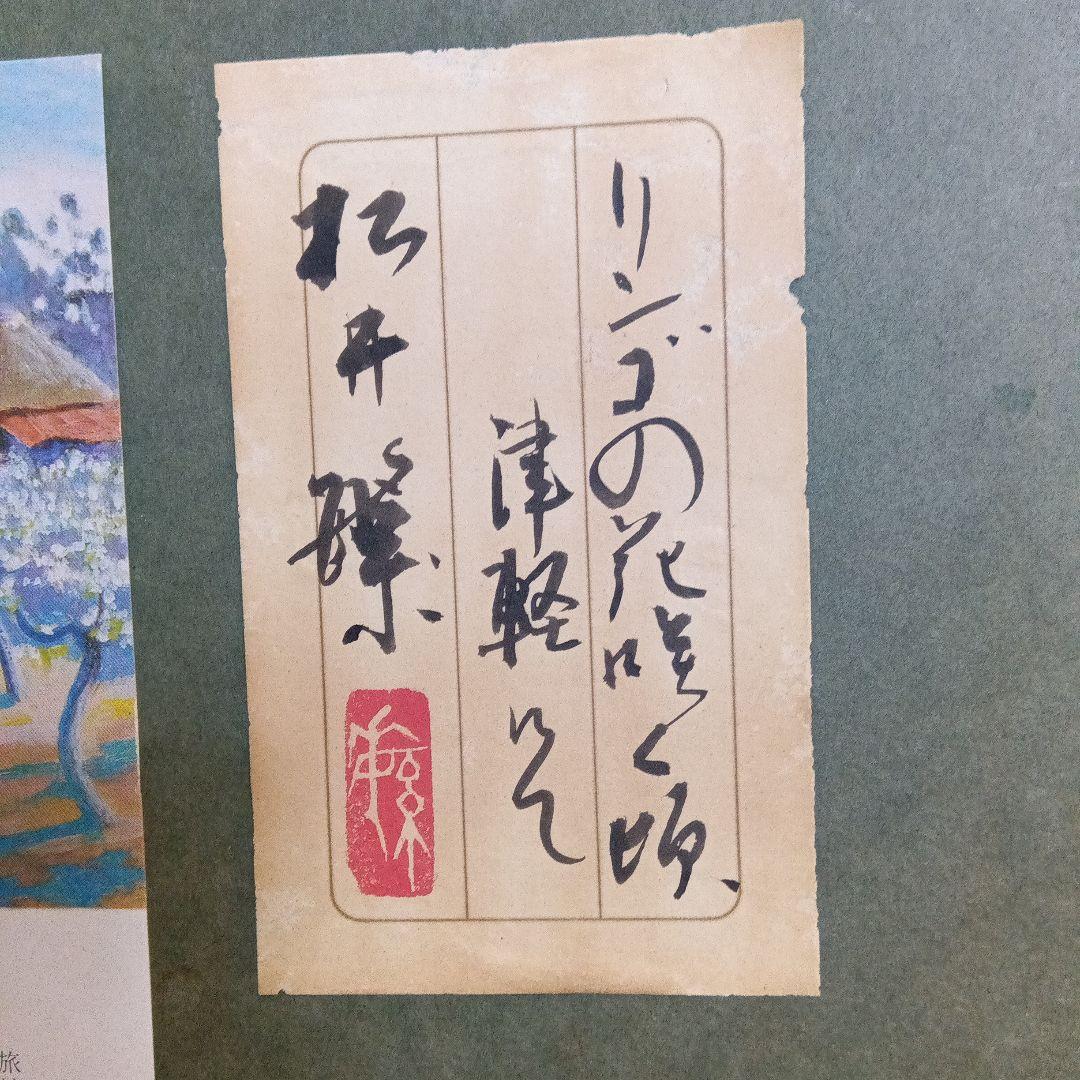 リンゴの花咲く頃、
津軽にて
松井繁
旅